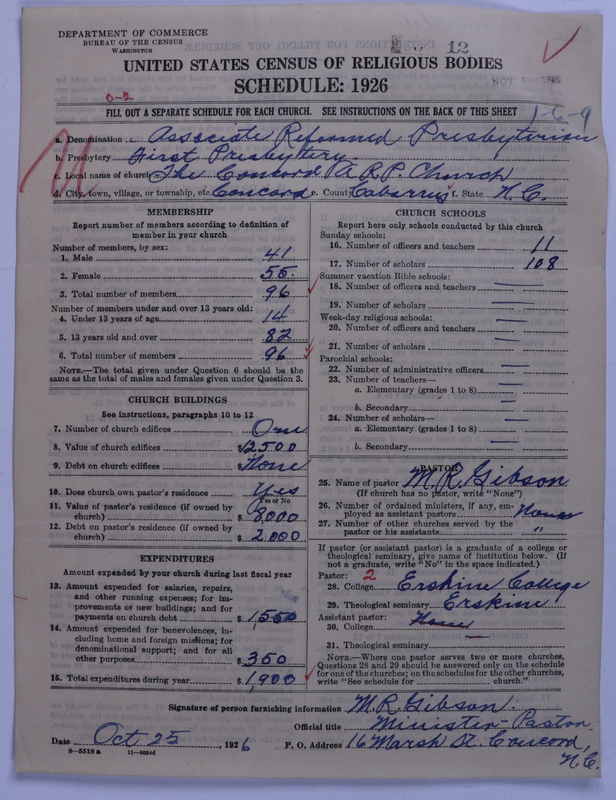 DEPARTMENT OF COMMERCE
BUREAU OF THE CENSUS
WASHINGTON
12
UNITED STATES CENSUS OF RELIGIOUS BODIES
SCHEDULE: 1926
NOV 1926
0-2
FILL OUT A SEPARATE SCHEDULE FOR EACH CHURCH. SEE INSTRUCTIONS ON THE BACK OF THIS SHEET
1-6-9
a. Denomination Associate Reformed Presbyterian
b. Presbytery First Presbytery
c. Local name of church The Concord A.R.P. Church
d. City, town, village, or township, etc. Concord e. County Cabarrus f. State N.C.
MEMBERSHIP
Report number of members according to definition of
member in your church
Number of members, by sex:
1. Male 41
2. Female 55
3. Total number of members 96
Number of members under and over 13 years old:
4. Under 13 years of age 14
5. 13 years old and over 82
6. Total number of members 96
NOTE.—The total given under Question 6 should be the
same as the total of males and females given under Question 3.
CHURCH BUILDINGS
See instructions, paragraphs 10 to 12
7. Number of church edifices One
8. Value of church edifices $2500
9. Debt on church edifices $None
10. Does church own pastor's residence Yes
Yes or No
11. Value of pastor's residence (if owned by
church) $8,000
12. Debt on pastor's residence (if owned by
church) $2,000
EXPENDITURES
Amount expended by your church during last fiscal year
13. Amount expended for salaries, repairs,
and other running expenses; for im-
provements or new buildings; and for
payments on church debt $1550
14. Amount expended for benevolences, in-
cluding home and foreign missions; for
denominational support; and for all
other purposes $350
15. Total expenditures during year $1,900
CHURCH SCHOOLS
Report here only schools conducted by this church
Sunday schools:
16. Number of officers and teachers 11
17. Number of scholars 108
Summer vacation Bible schools:
18. Number of officers and teachers —
19. Number of scholars —
Week-day religious schools:
20. Number of officers and teachers —
21. Number of scholars —
Parochial schools:
22. Number of administrative officers —
23. Number of teachers—
a. Elementary (grades 1 to 8) —
b. Secondary —
24. Number of scholars—
a. Elementary (grades 1 to 8) —
b. Secondary —
PASTOR
25. Name of pastor M.R. Gibson
(If church has no pastor, write "None")
26. Number of ordained ministers, if any, em-
ployed as assistant pastors None
27. Number of other churches served by the
pastor or his assistants "
If pastor (or assistant pastor) is a graduate of a college or
theological seminary, give name of Institution below. (If
not a graduate, write "No" in the space indicated.)
Pastor: 2
28. College Erskine College
29. Theological seminary Erskine "
Assistant pastor:
30. College None
31. Theological seminary —
NOTE.—Where one pastor serves two or more churches,
Questions 28 and 29 should be answered only on the schedule
for one of the churches; on the schedules for the other churches,
write "See schedule for church."
Signature of person furnishing information M.R. Gibson.
Official title Minister-Pastor.
Date Oct 25, 1926 P. O. Address 16 Marsh St. Concord,
N.C.
8—5518a 11—9054d